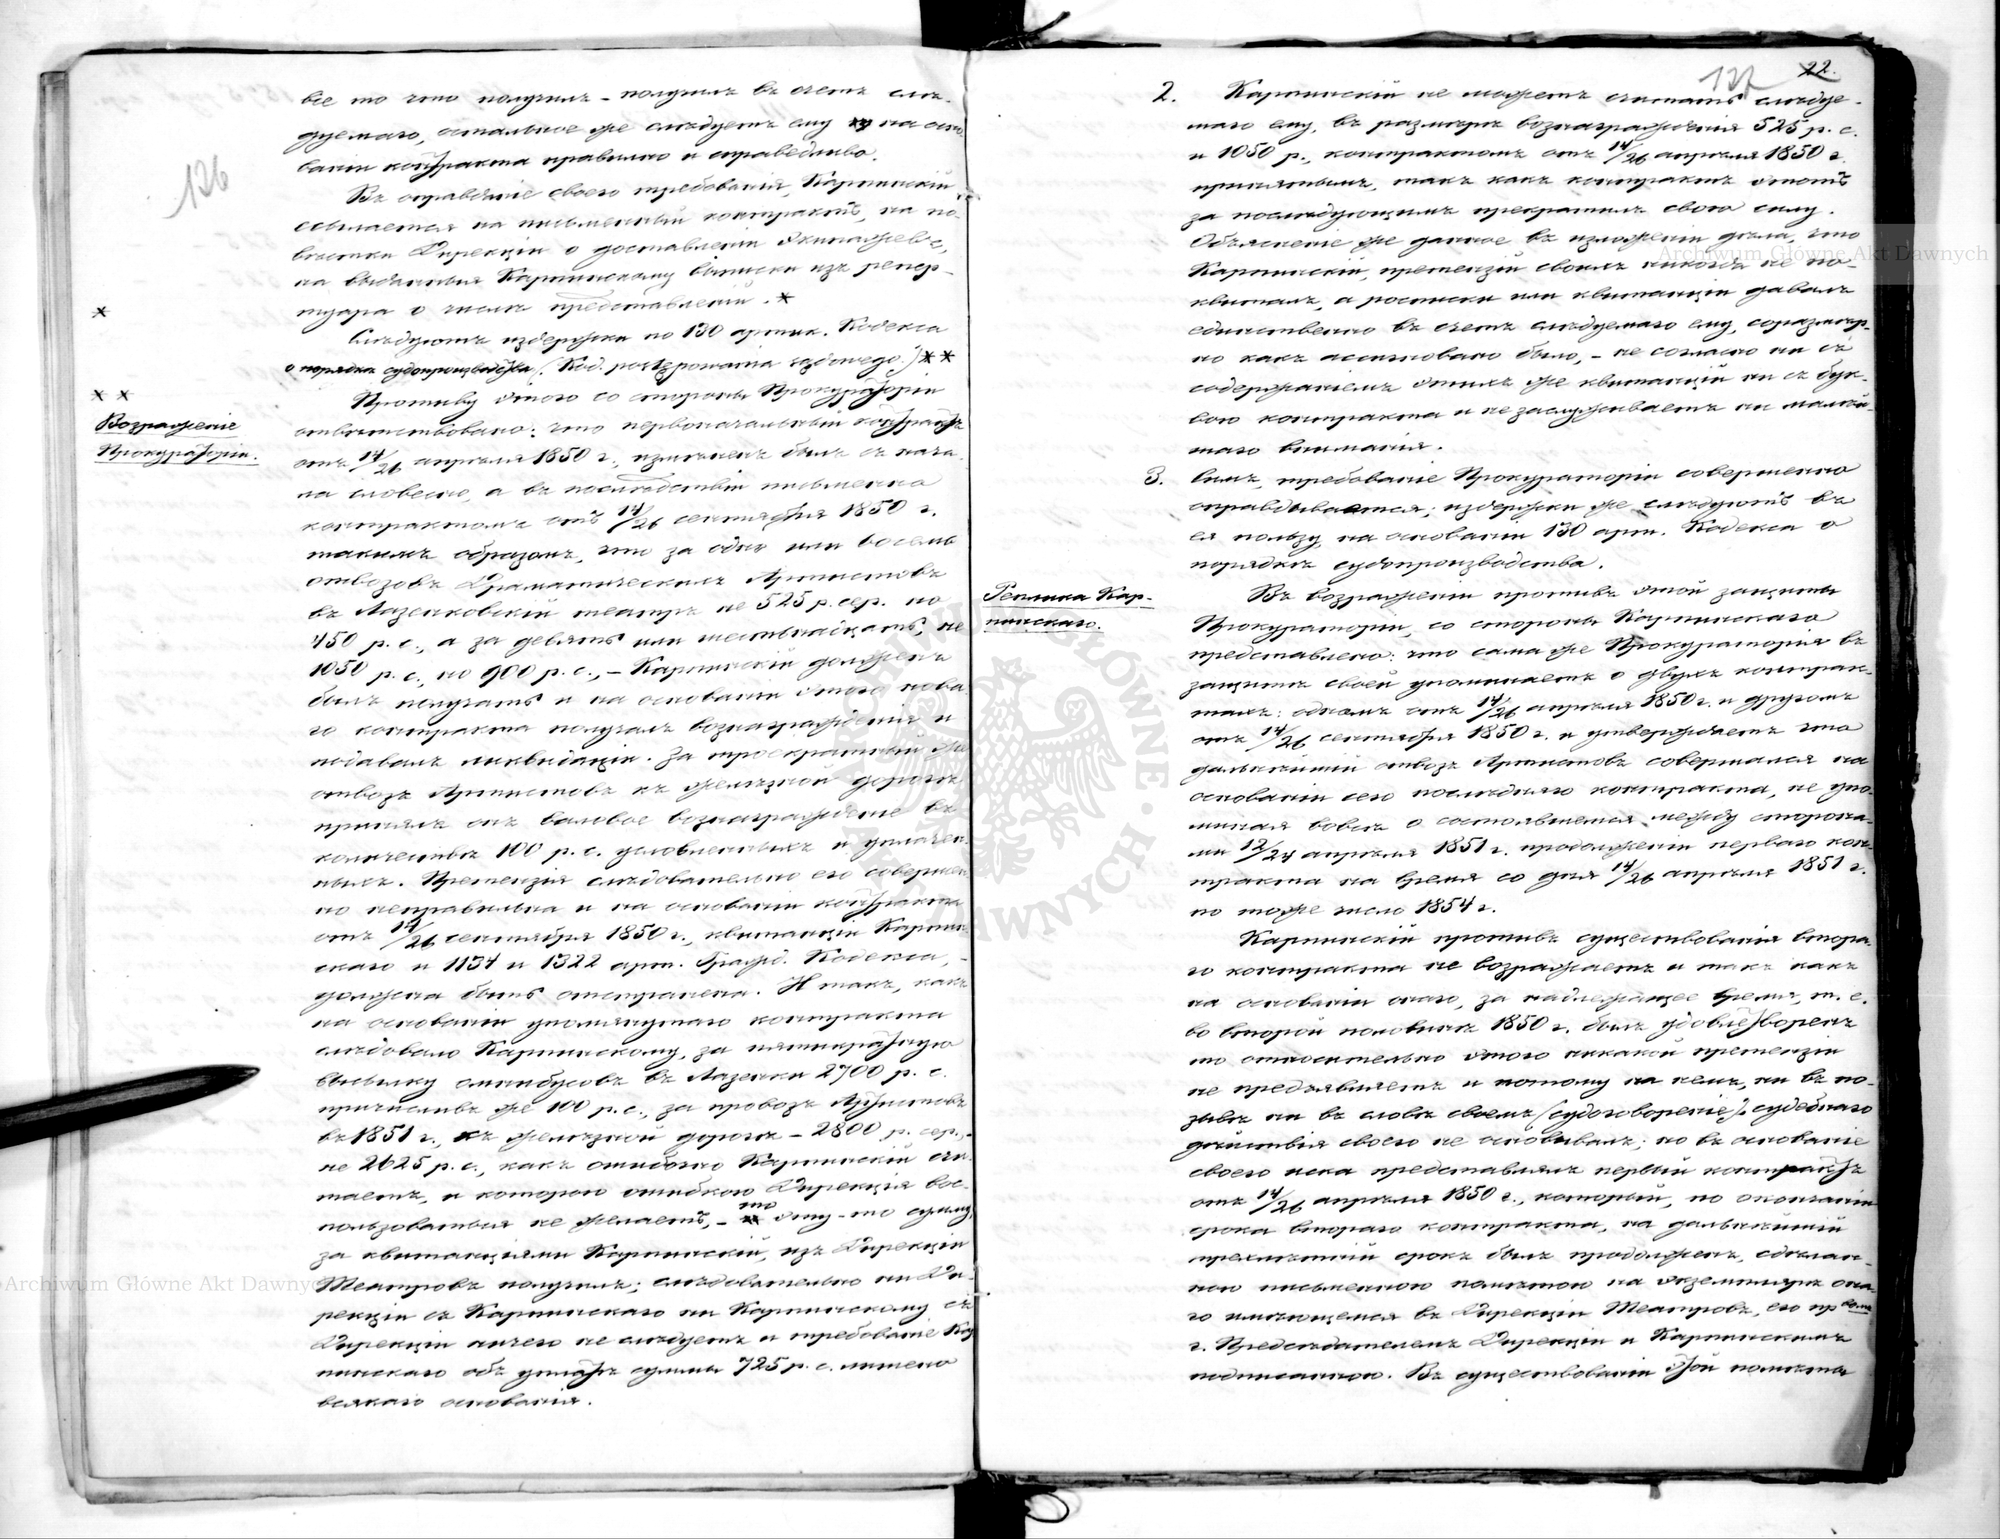 126
все то что получилъ – получилъ въ счетъ слѣ-
дуемаго, остальное же слѣдуетъ ему на осно-
ваніи контракта правильно и справедливо.
Въ оправданіе своего требованія, Карпинскій
ссылается на письменный контрактъ, на по-
вѣстки Дирекціи о доставленіи экипажев,
на выданныя Карпинскому выписки изъ репер-
туара о числѣ представленій. *
*
Слѣдуютъ издержки по 130 артик. Кодекса
о порядкѣ судопроизводства (Kod. postępowania sądowego.) **
**
Противу этого со стороны Прокураторіи
Возраженіе
Прокураторіи.
отвѣтствовано: что первоначальный контрактъ
отъ 14/26 апрѣля 1850 г., измѣненъ былъ съ нача-
ла словесно, а въ послѣдствіи письменно
контрактомъ отъ 14/26 сентября 1850 г.
такимъ образомъ, что за одинъ или восемь
отвозовъ Драматическихъ Артистовъ
въ Лазенковскій театръ не 525 р. сер. но
450 р. с., а за девять или шестьнадцать, не
1050 р. с., но 900 р. с., – Карпинскій долженъ
былъ получать и на основаніи этого нова-
го контракта получалъ вознагражденія и
подавалъ ликвидаціи. За троекратный же
отвозъ Артистовъ къ желѣзной дорогѣ,
принялъ онъ валовое вознагражденіе въ
количествѣ 100 р. с. условленныхъ и уплачен-
ныхъ. Претензія слѣдовательно его совершен-
но неправильна и на основаніи контракта
отъ 14/26 сентября 1850 г., квитанціи Карпин-
скаго и 1134 и 1322 арт. Гражд. Кодекса, –
должна быть отстранена. И такъ, какъ
на основаніи упомянутаго контракта
слѣдовало Карпинскому, за пятикратную
высылку омнибусовъ въ Лазенки 2700 р. с.
причисливъ же 100 р. с., за провозъ Артистовъ
въ 1851 г., къ желѣзной дорогѣ – 2800 р. сер., –
не 2625 р. с., какъ ошибочно Карпинскій счи-
таетъ, и которою ошибкою Дирекція вос-
пользоваться не желаетъ, – то эту-то сумму,
за квитанціями Карпинскій, изъ Дирекціи
Театровъ получилъ; слѣдовательно ни Ди-
рекціи съ Карпинскаго ни Карпинскому съ
Дирекціи ничего не слѣдуетъ и требованіе Кар-
пинскаго объ уплатѣ суммы 725 р. с. лишено
всякаго основанія.
127 22.
2. Карпинскій не можетъ считать слѣдуе-
маго ему, въ размѣрѣ вознагражденія 525 р. с.
и 1050 р., контрактомъ отъ 14/26 апрѣля 1850 г.
принятымъ, такъ какъ контрактъ этотъ
за послѣдующимъ прекратилъ свою силу.
Объясненіе же данное въ изложеніи дѣла, что
Карпинскій, претензій своихъ никогда не по-
квиталъ, а росписки или квитанціи давалъ
единственно въ счетъ слѣдуемаго ему, соразмѣр-
но какъ ассигновано было, – не согласно ни съ
содержаніемъ этихъ же квитанцій ни съ бук-
вою контракта и не заслуживаетъ ни малѣй-
шаго вниманія.
3. Симъ, требованіе Прокураторіи совершенно
оправдывается; издержки же слѣдуютъ въ
ея пользу на основаніи 130 арт. Кодекса о
порядкѣ судопроизводства.
Реплика Кар-
пинскаго.
Въ возраженіи противъ этой защиты
Прокураторіи, со стороны Карпинскаго
представлено: что сама же Прокураторія въ
защитѣ своей упоминаетъ о двухъ контрак-
тахъ: одномъ отъ 14/26 апрѣля 1850 г. и другомъ
отъ 14/26 сентября 1850 г. и утверждаетъ что
дальнѣйшій отвозъ Артистовъ совершался на
основаніи сего послѣдняго контракта, не упо-
миная вовсе о состоявшемся между сторона-
ми 12/24 апрѣля 1851 г. продолженіи перваго кон-
тракта на время со дня 14/26 апрѣля 1851 г.
по тоже число 1854 г.
Карпинскій противъ существованія втора-
го контракта не возражаетъ и такъ какъ
на основаніи онаго, за надлежащее время, т. е.
во второй половинѣ 1850 г. былъ удовлетворенъ
то относительно этого никакой претензіи
не предъявляетъ и потому на немъ, ни въ по-
зывѣ ни въ словѣ своемъ (судоговореніе) судебнаго
дѣйствія своего не основывалъ; но въ основаніе
своего иска представлялъ первый контрактъ
отъ 14/26 апрѣля 1850 г., который, по окончаніи
срока втораго контракта, на дальнѣйшій
трехлѣтній срокъ былъ продолженъ, сдѣлан-
ною письменною помѣтою на экземплярѣ она-
го имѣющемся въ Дирекціи Театровъ, его прев.
г. Предсѣдателемъ Дирекціи и Карпинскимъ
подписанною. Въ существованіи этой помѣты
Archiwum Główne Akt Dawnych
Archiwum Główne Akt Dawnych
ARCHIWUM GŁÓWNE AKT DAWNYCH